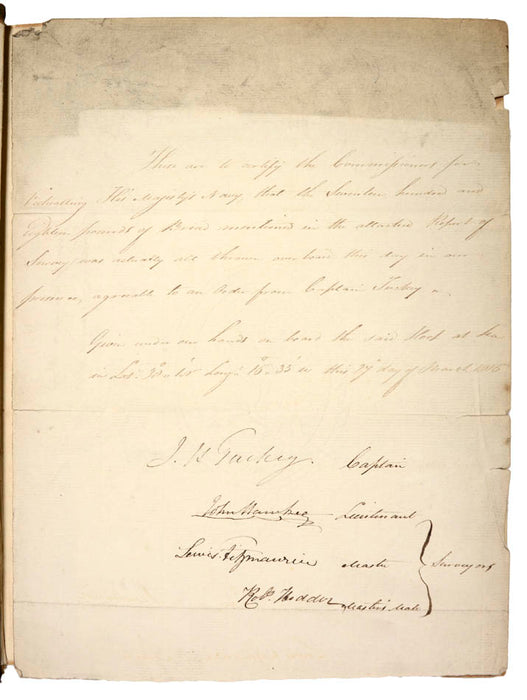 These are to certify the Commissioners for
Victualling His Majesty's Navy, that the Seventeen hundred and
Eighteen pounds of Bread mentioned in the attached Report of
Survey was actually all thrown overboard this day in our
presence, agreeable to an Order from Captain Tuckey
Given under our hands on board the said Sloop at Sea
in Lat. Long. W this day of March 1816
J. H. Tuckey. Captain
John Hawkey Lieutenant
Lewis Fitzmaurice Master Surveyors
Robt. Hodder Master's Mate